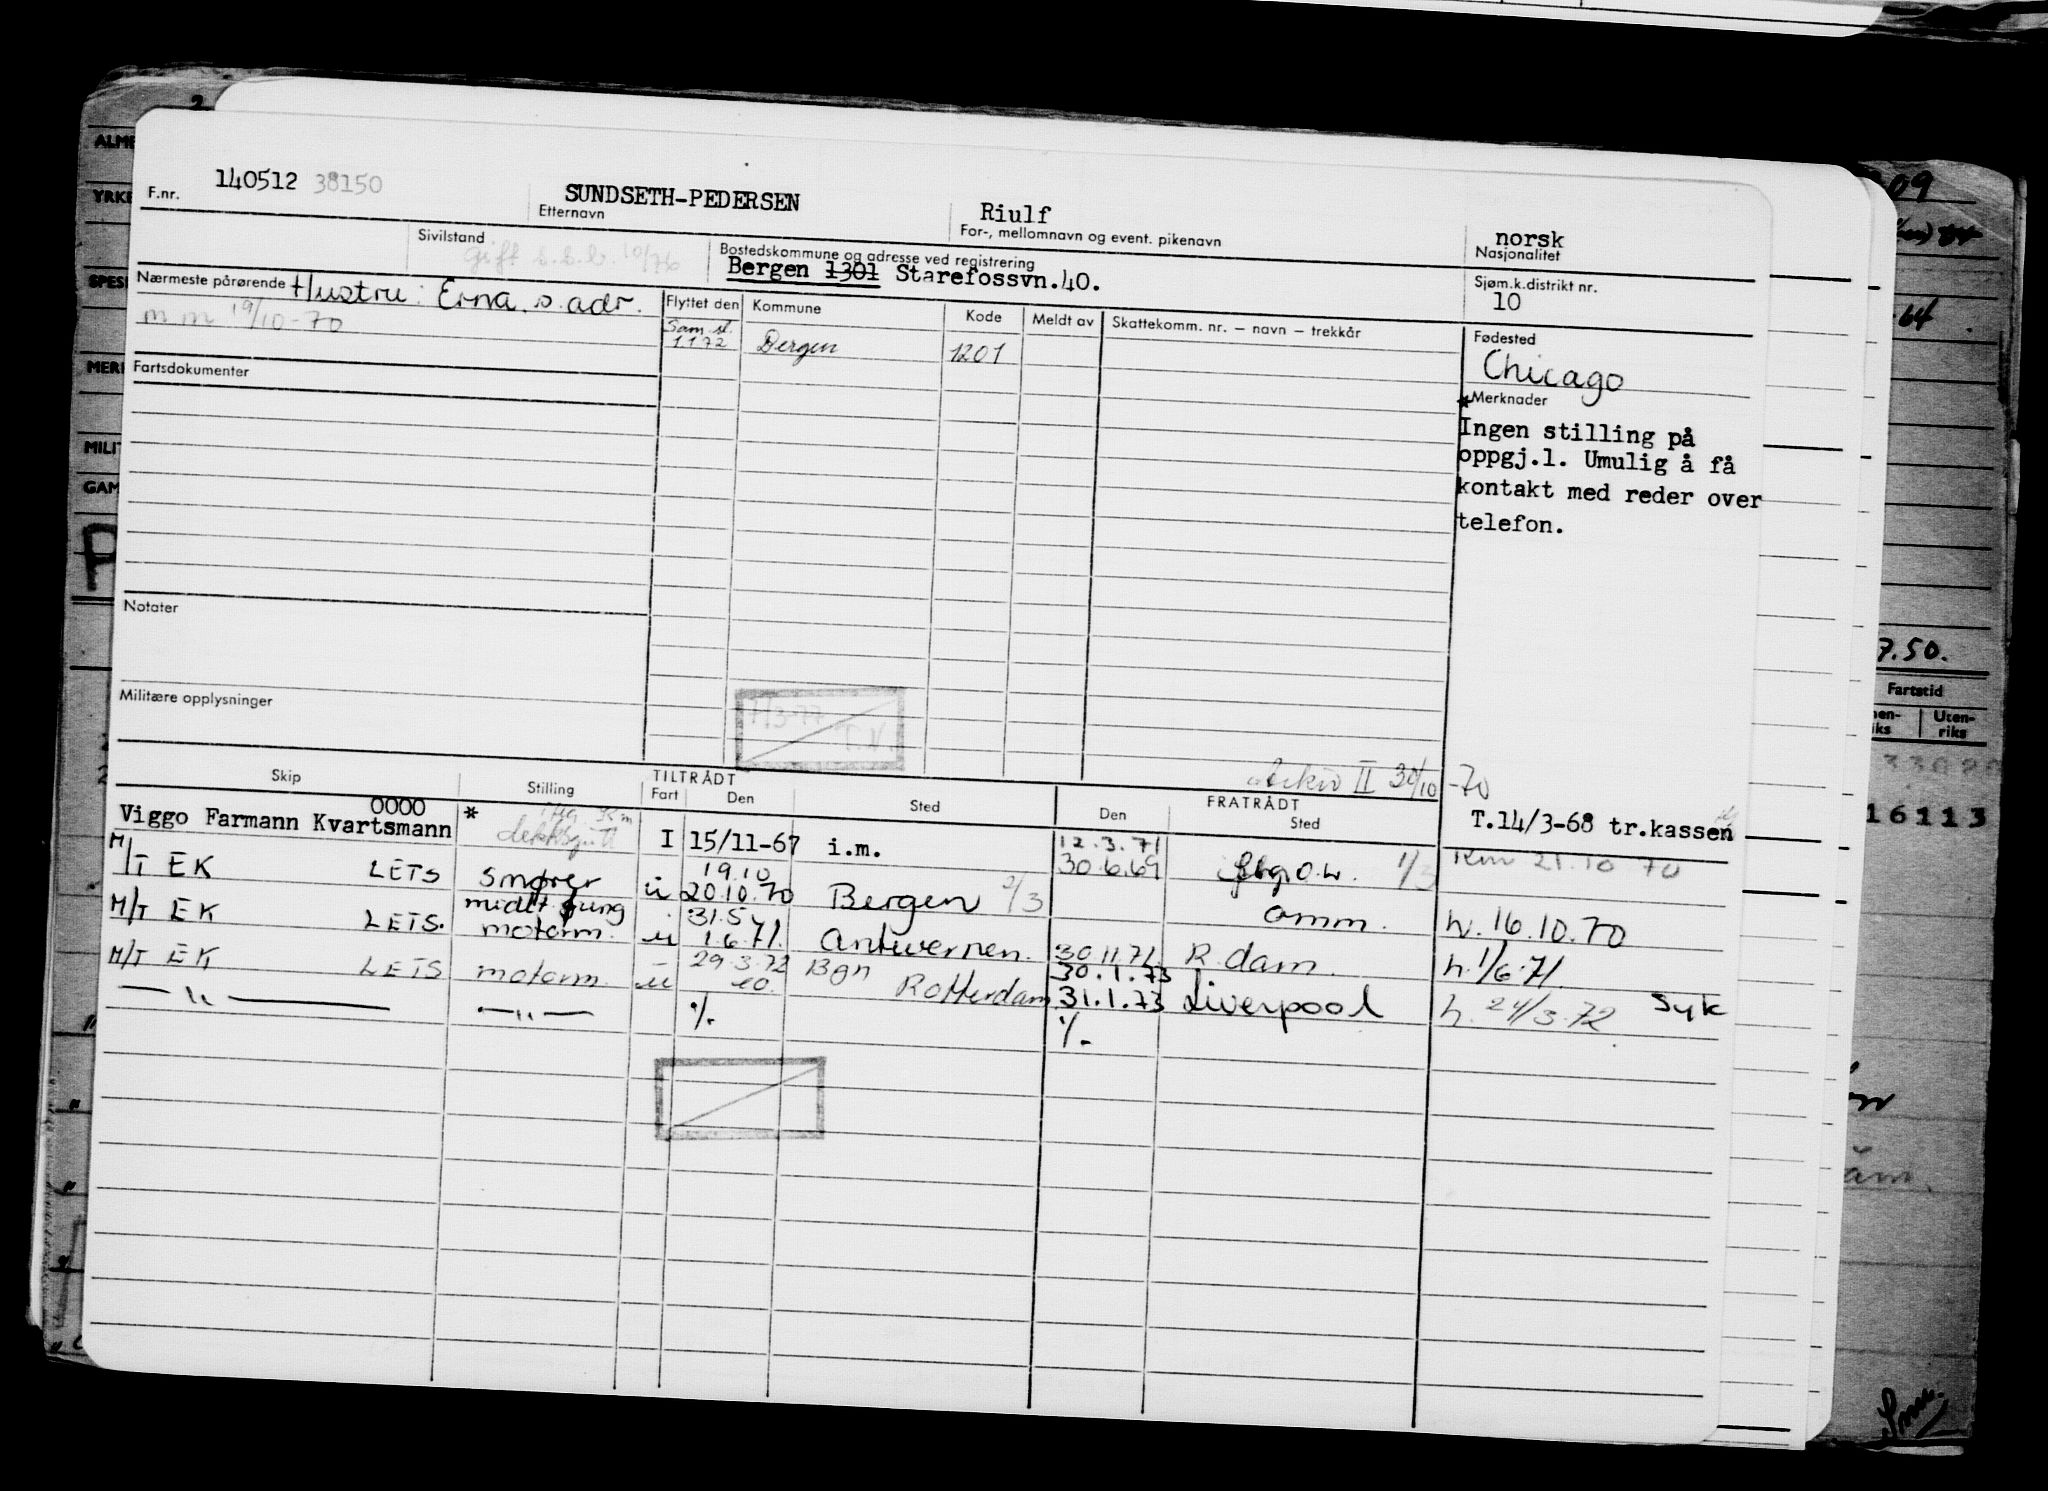 140512 38150
F.nr.
SUNDSETH-PEDERSEN
Etternavn
Riulf
For-, mellomnavn og event. pikenavn
norsk
Nasjonalitet
Sivilstand
gift b.s.b. 10/76
Bostedskommune og adresse ved registrering
Bergen 1301 Starefossvn.40.
Sjøm.k.distrikt nr.
10
Nærmeste pårørende Hustru: Erna. s. adr.
m m 19/10-70
Flyttet den
Kommune
Kode
Meldt av
Skattekomm. nr. – navn – trekkår
Sam. st.
1172
Bergen
1201
Fødested
Chicago
Fartsdokumenter
*Merknader
Ingen stilling på
oppgj.l. Umulig å få
kontakt med reder over
telefon.
Notater
Militære opplysninger
1/3-77
T.N.
Arkiv II 30/10-70
Skip
Stilling
TILTRÅDT
Fart
Den
Sted
FRATRÅDT
Den
Sted
T.14/3-68 tr.kassen
Viggo Farmann Kvartsmann 0000 * dekksgutt I 15/11-67 i.m. 12.3.71 30.6.69 1/3 21.10 70
M/T EK LETS smører ü 19.10 20.10.70 Bergen 2/3 omm. h. 16.10.70
M/T EK LETS. motorm. u 31.5 1.6.71. Antwerpen. 30.11.71. R.dam. h. 1/6.71.
M/T EK LETS motorm. u 29.3.72 Bgn Rotterdam 30.1.73 31.1.73 Liverpool h. 24/3.72 syk
—"— —"— %. %.
ALME
YRKE
SPES
MERI
MILIT
GAM
P
09
64
7.50.
Fartstid
Uten-
riks
16113